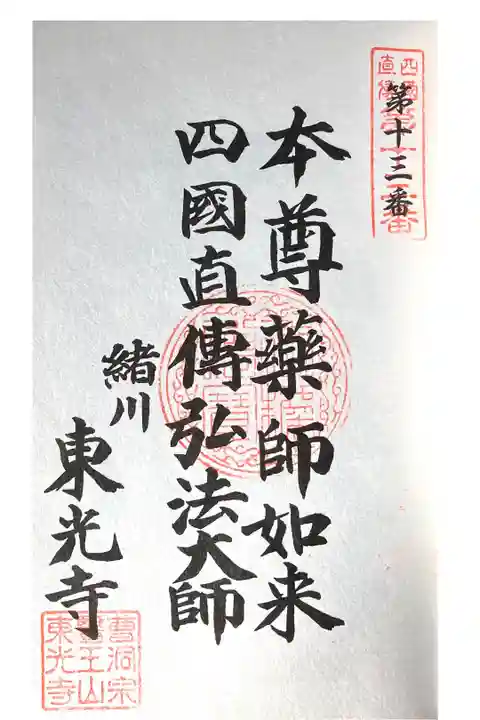 第十三番
本尊薬師如来
四國直傳弘法大師
緒川
東光寺
曹洞宗
醫王山
東光寺